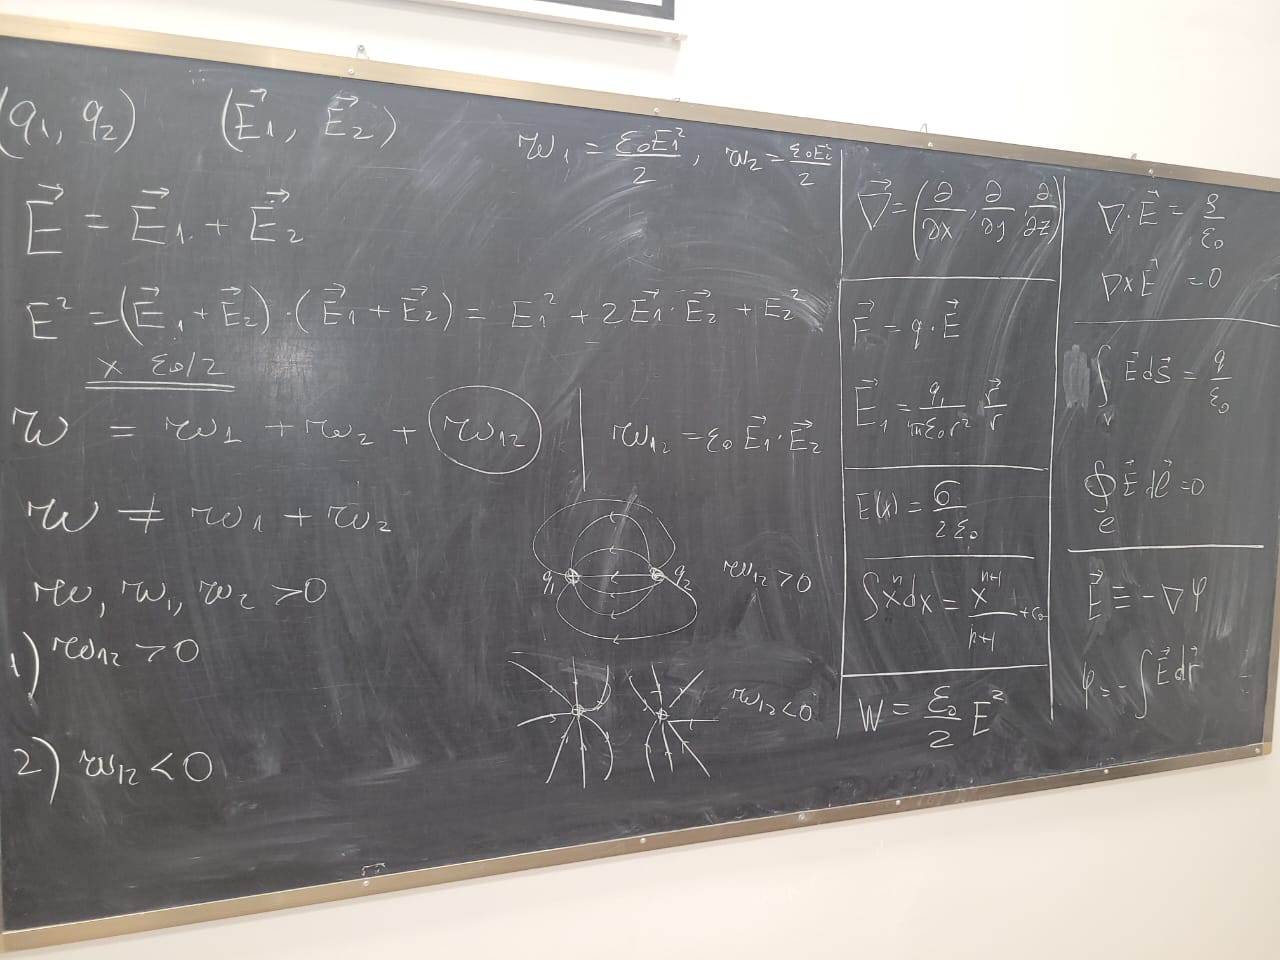 (q₁, q₂) (E⃗₁, E⃗₂)
w₁ = ε₀E₁²/2, w₂ = ε₀E₂²/2
E⃗ = E⃗₁ + E⃗₂
E² = (E⃗₁ + E⃗₂)·(E⃗₁ + E⃗₂) = E₁² + 2E⃗₁·E⃗₂ + E₂²
x ε₀/2
w = w₁ + w₂ + w₁₂ | w₁₂ = ε₀E⃗₁·E⃗₂
w ≠ w₁ + w₂
w, w₁, w₂ > 0
1) w₁₂ > 0
2) w₁₂ < 0
q₁ q₂ w₁₂ > 0
w₁₂ < 0
∇⃗ = (∂/∂x, ∂/∂y, ∂/∂z)
F⃗ = q·E⃗
E⃗₁ = q₁/πε₀r² r⃗/r
E(x) = σ/2ε₀
∫xⁿdx = xⁿ⁺¹/n+1 + c₀
W = ε₀/2 E²
∇·E⃗ = ρ/ε₀
∇xE⃗ = 0
∫ E⃗ dS⃗ = q/ε₀
V
∮ E⃗ dℓ⃗ = 0
e
E⃗ ≡ -∇φ
φ = -∫E⃗ dr⃗